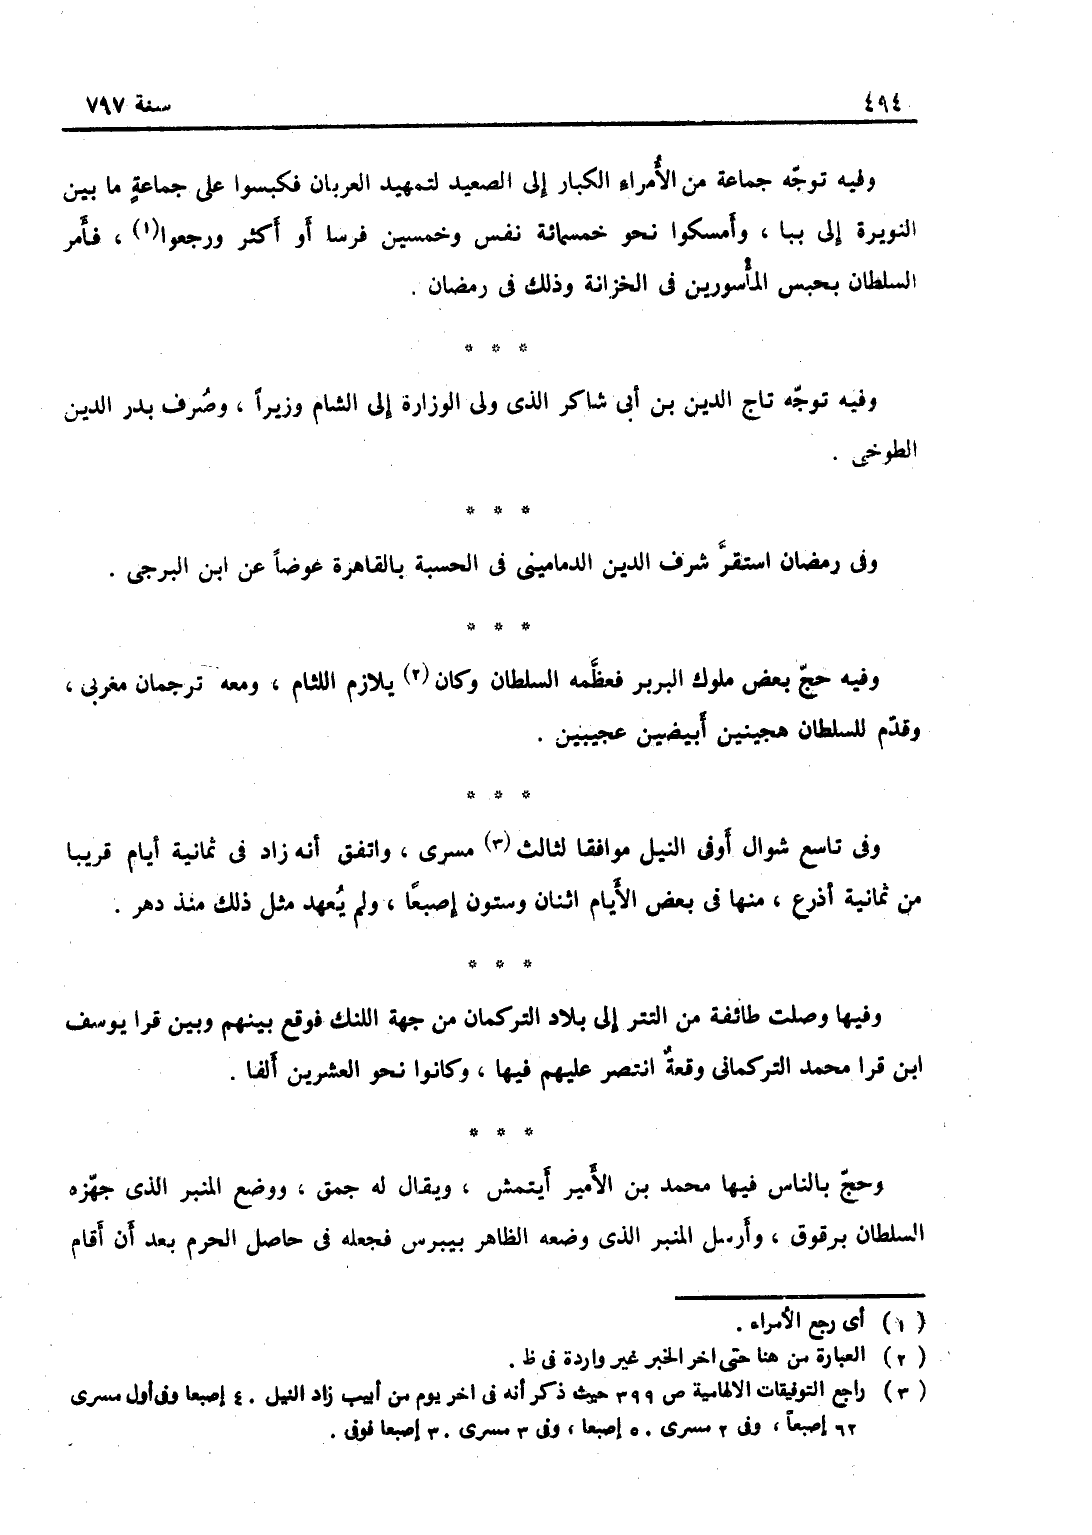 ٤٩٤ سنة ٧٩٧
وفيه توجّه جماعة من الأُمراء الكبار إلى الصعيد لتمهيد العربان فكبسوا على جماعةٍ ما بين
النويرة إلى ببا ، وأَمسكوا نحو خمسمائة نفس وخمسين فرسا أو أَكثر ورجعوا(١) ، فأَمر
السلطان بحبس المأْسورين فى الخزانة وذلك فى رمضان .
* * *
وفيه توجّه تاج الدين بن أبى شاكر الذى ولى الوزارة إلى الشام وزيراً ، وصُرف بدر الدين
الطوخى .
* * *
وفى رمضان استقرَّ شرف الدين الدمامينى فى الحسبة بالقاهرة عوضاً عن ابن البرجى .
* * *
وفيه حجّ بعض ملوك البربر فعظَّمه السلطان وكان(٢) يلازم اللثام ، ومعه ترجمان مغربى ،
وقدّم للسلطان هجينين أَبيضين عجيبين .
* * *
وفى تاسع شوال أَوفى النيل موافقا لثالث(٣) مسرى ، واتفق أنه زاد فى ثمانية أيام قريبا
من ثمانية أذرع ، منها فى بعض الأَيام اثنان وستون إصبعًا ، ولم يُعهد مثل ذلك منذ دهر .
* * *
وفيها وصلت طائفة من التتر إلى بلاد التركمان من جهة اللنك فوقع بينهم وبين قرا يوسف
ابن قرا محمد التركمانى وقعةٌ انتصر عليهم فيها ، وكانوا نحو العشرين أَلفا .
* * *
وحجّ بالناس فيها محمد بن الأَمير أَيتمش ، ويقال له جمق ، ووضع المنبر الذى جهّزه
السلطان برقوق ، وأَرسل المنبر الذى وضعه الظاهر بيبرس فجعله فى حاصل الحرم بعد أَن أَقام
(١) أى رجع الأمراء .
(٢) العبارة من هنا حتى اخر الخبر غير واردة فى ظ .
(٣) راجع التوفيقات الالهامية ص ٣٩٩ حيث ذكر أنه فى اخر يوم من أبيب زاد النيل ٤٠ إصبعا وفى أول مسرى
٦٢ إصبعاً ، وفى ٢ مسرى ٥٠ إصبعا ، وفى ٣ مسرى ٣٠ إصبعا فوفى .